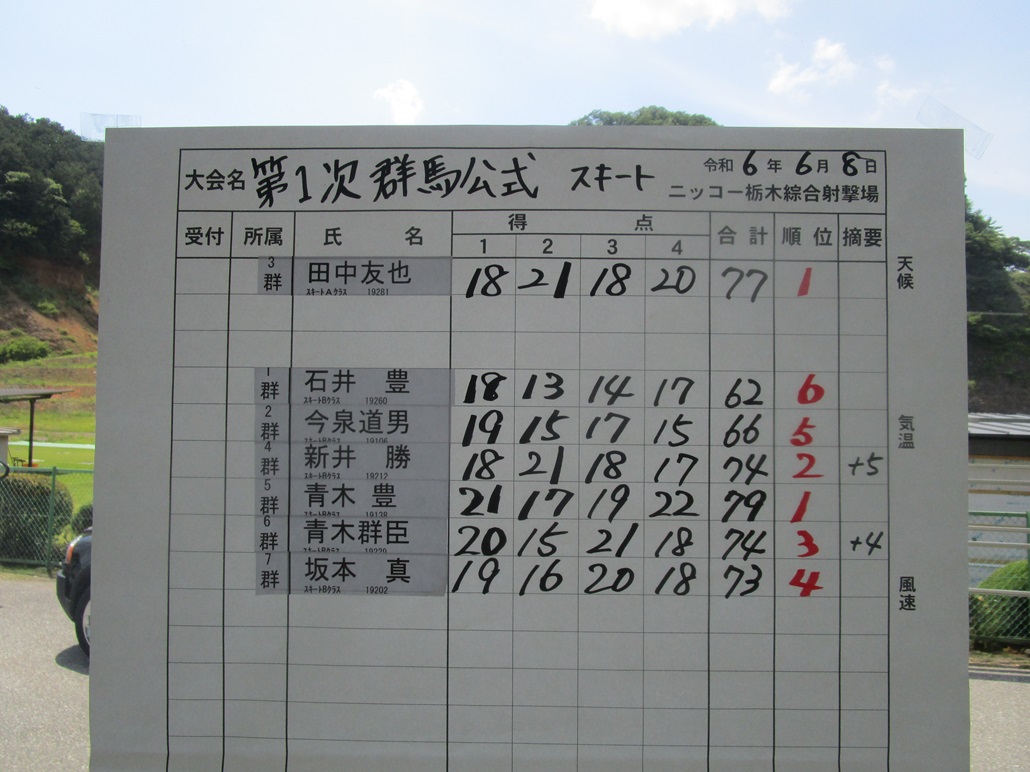 大会名 第1次 群馬公式 スキート 令和 6 年 6 月 8 日
ニッコー栃木綜合射撃場
受付 所属 氏 名 得 点 合計 順位 摘要
1 2 3 4
3 群 田中友也 18 21 18 20 77 1
スキートAクラス 19281
1 群 石井 豊 18 13 14 17 62 6
スキートBクラス 19260
2 群 今泉道男 19 15 17 15 66 5
スキートBクラス 19106
4 群 新井 勝 18 21 18 17 74 2 +5
スキートBクラス 19212
5 群 青木 豊 21 17 19 22 79 1
スキートBクラス 19138
6 群 青木群臣 20 15 21 18 74 3 +4
スキートBクラス
7 群 坂本 真 19 16 20 18 73 4
スキートBクラス 19202
天候
気温
風速